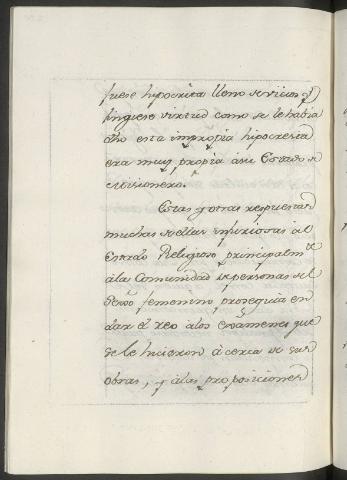 fuese hipocrita lleno de vicios q̃
fingiese virtud como se le habia
dho esta impropia hipocresia
era muy propia á su Estado de
Misionero.
Estas y otras respuestas
muchas de ellas injuriosas al
Estado Religioso principalm.te
á la Comunidad de personas del
Sexo femenino, proseguia en
dar el reo á los examenes que
se le hicieron á cerca de sus
obras, y á las proposiciones